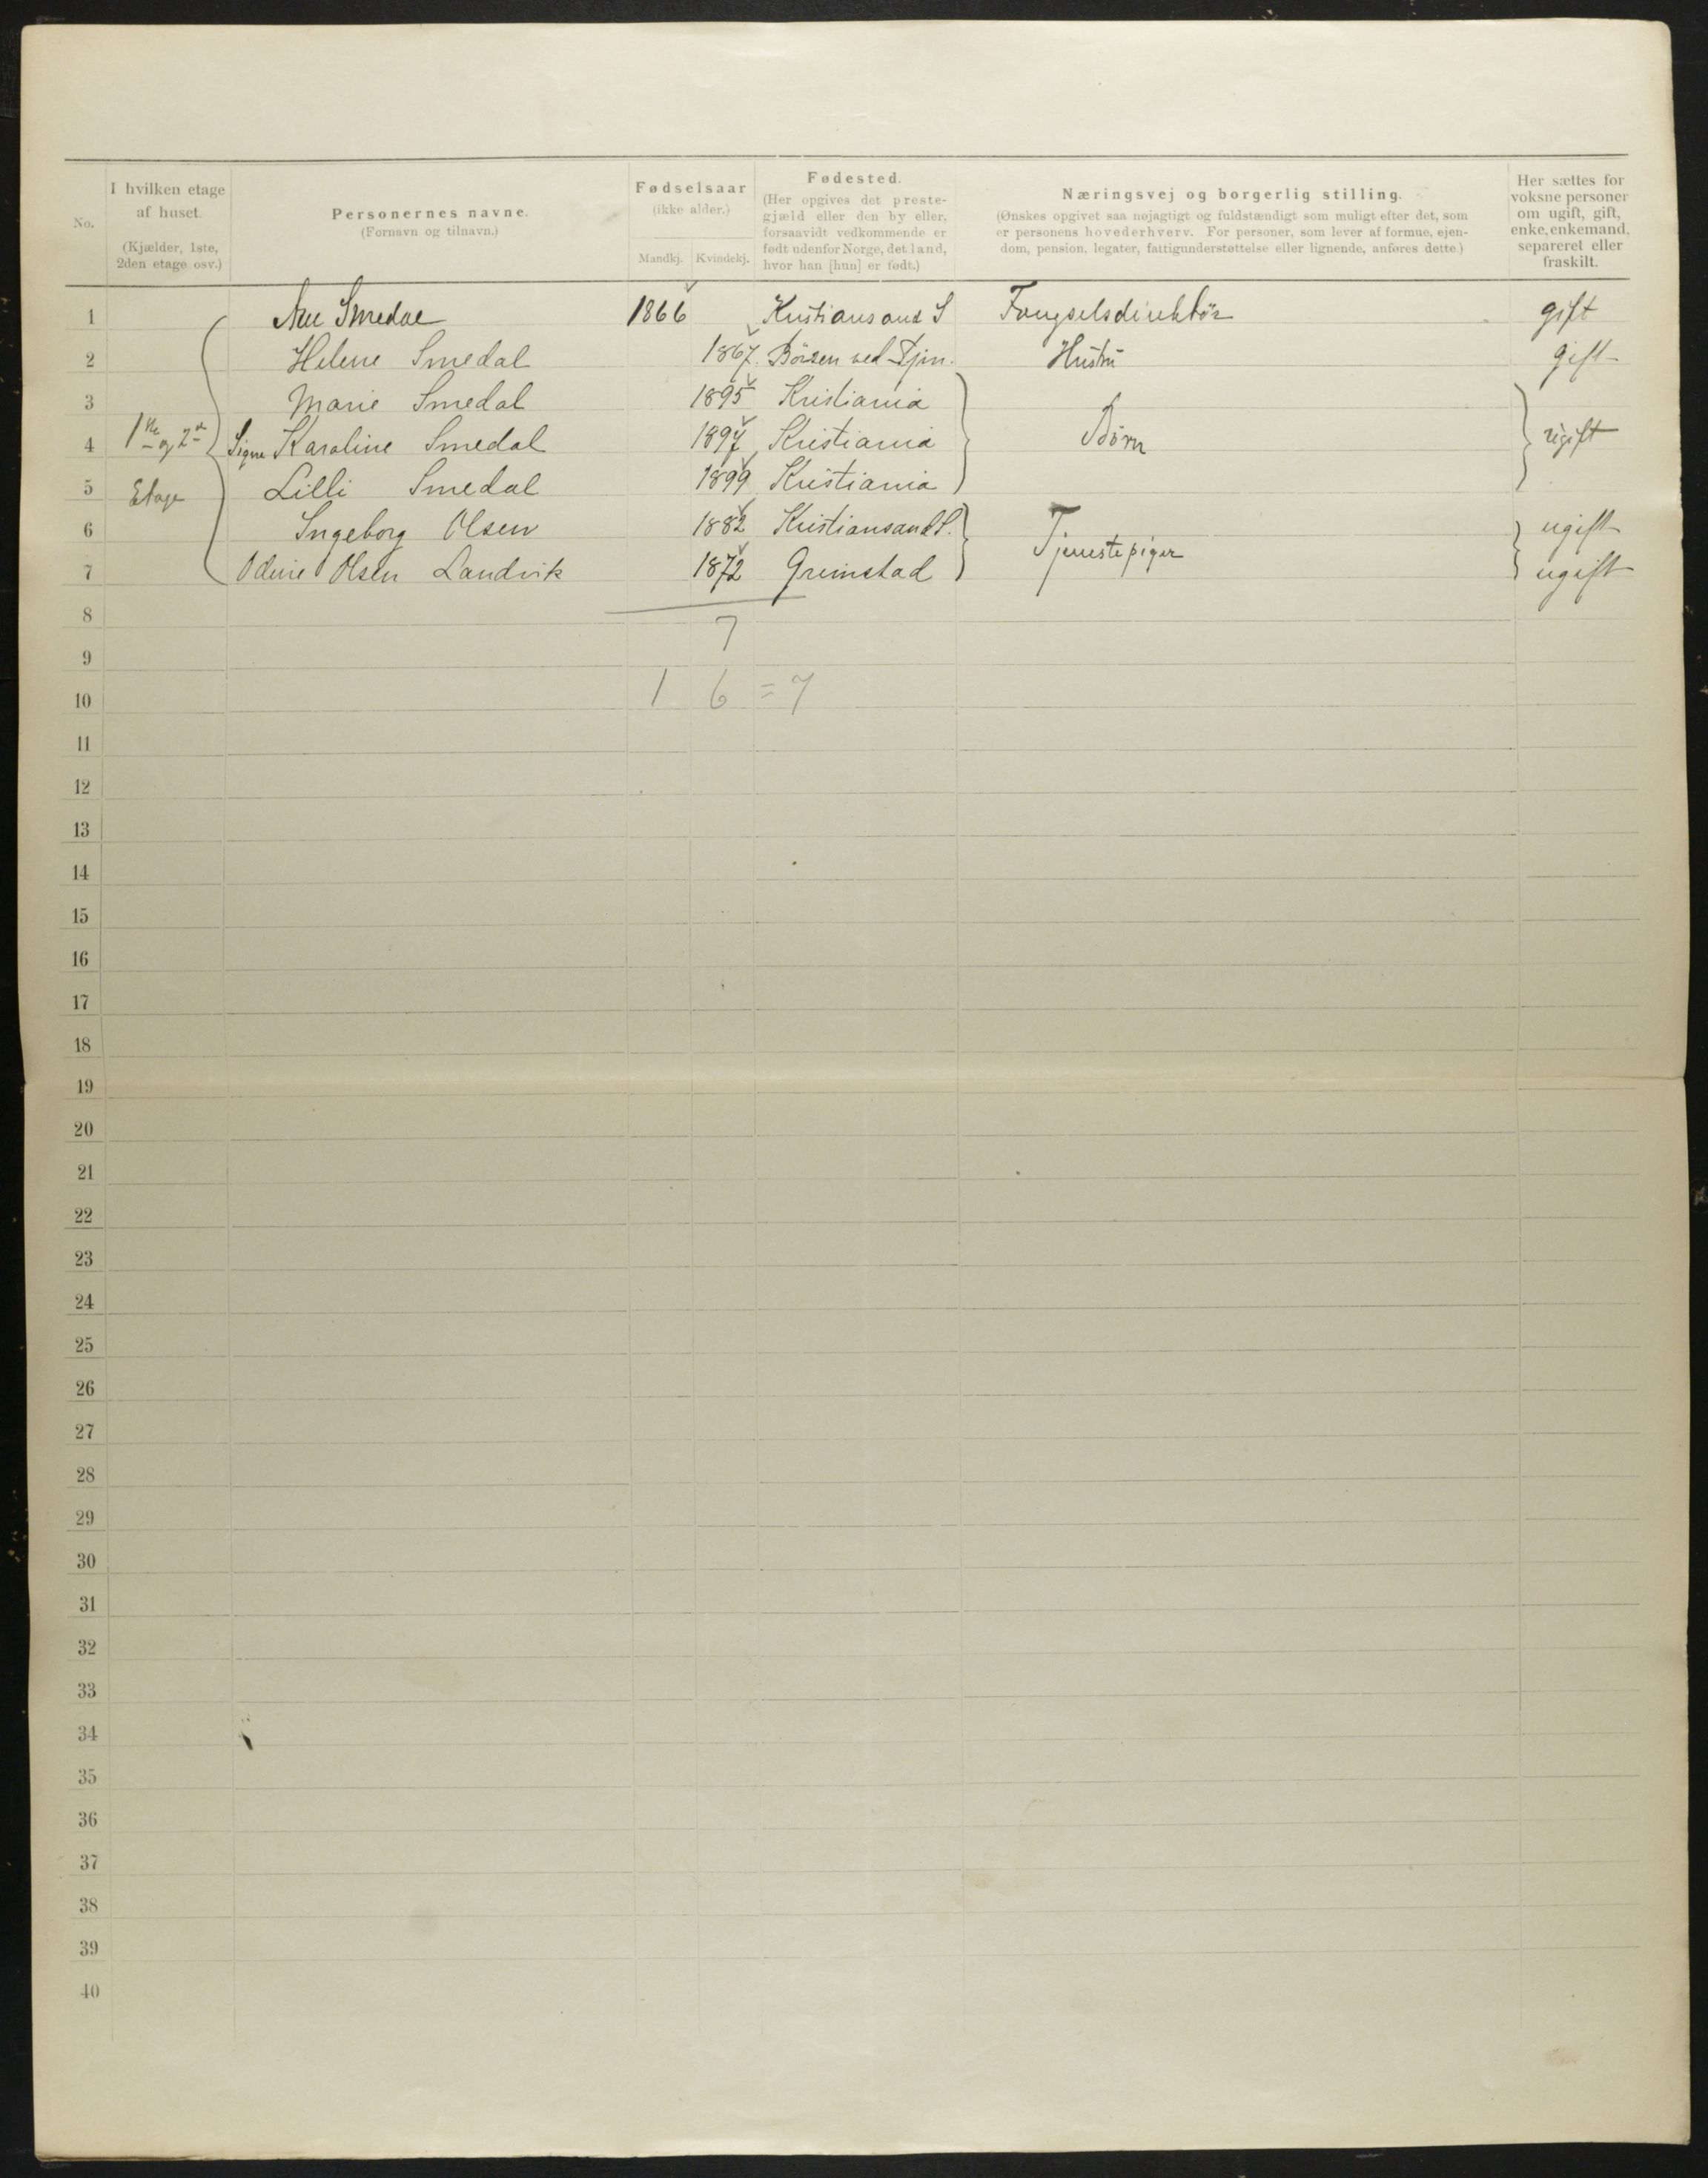 No.
I hvilken etage af huset. (Kjælder, 1ste, 2den etage osv.)
Personernes navne. (Fornavn og tilnavn.)
Fødselsaar (ikke alder.)
Mandkj. Kvindekj.
Fødested. (Her opgives det prestegjæld eller den by eller, forsaavidt vedkommende er født udenfor Norge, det land, hvor han [hun] er født.)
Næringsvej og borgerlig stilling.
(Ønskes opgivet saa nøjagtigt og fuldstændigt som muligt efter det, som
er personens hovederhverv. For personer, som lever af formue, ejen-
dom, pension, legater, fattigunderstøttelse eller lignende, anføres dette.)
Her sættes for
voksne personer
om ugift, gift,
enke, enkemand,
separeret eller
fraskilt.
1 Smedal 1866 Kristiansand S Fængselsdirektör gift
2 Helene Smedal 1867. Börsen ved Tjm. Hustru gift
3 Marie Smedal 1895 Kristiania
4 1ste og 2den Signe Karoline Smedal 1897 Kristiania Börn ugift
5 Etage Lilli Smedal 1899 Kristiania
6 Ingeborg Olsen 1882 Kristiansand S. ugift
Tjenestepiger
7 Odine Olsen Landvik 1872 Grimstad ugift
8 7
9
10 1 6 = 7
11
12
13
14
15
16
17
18
19
20
21
22
23
24
25
26
27
28
29
30
31
32
33
34
35
36
37
38
39
40